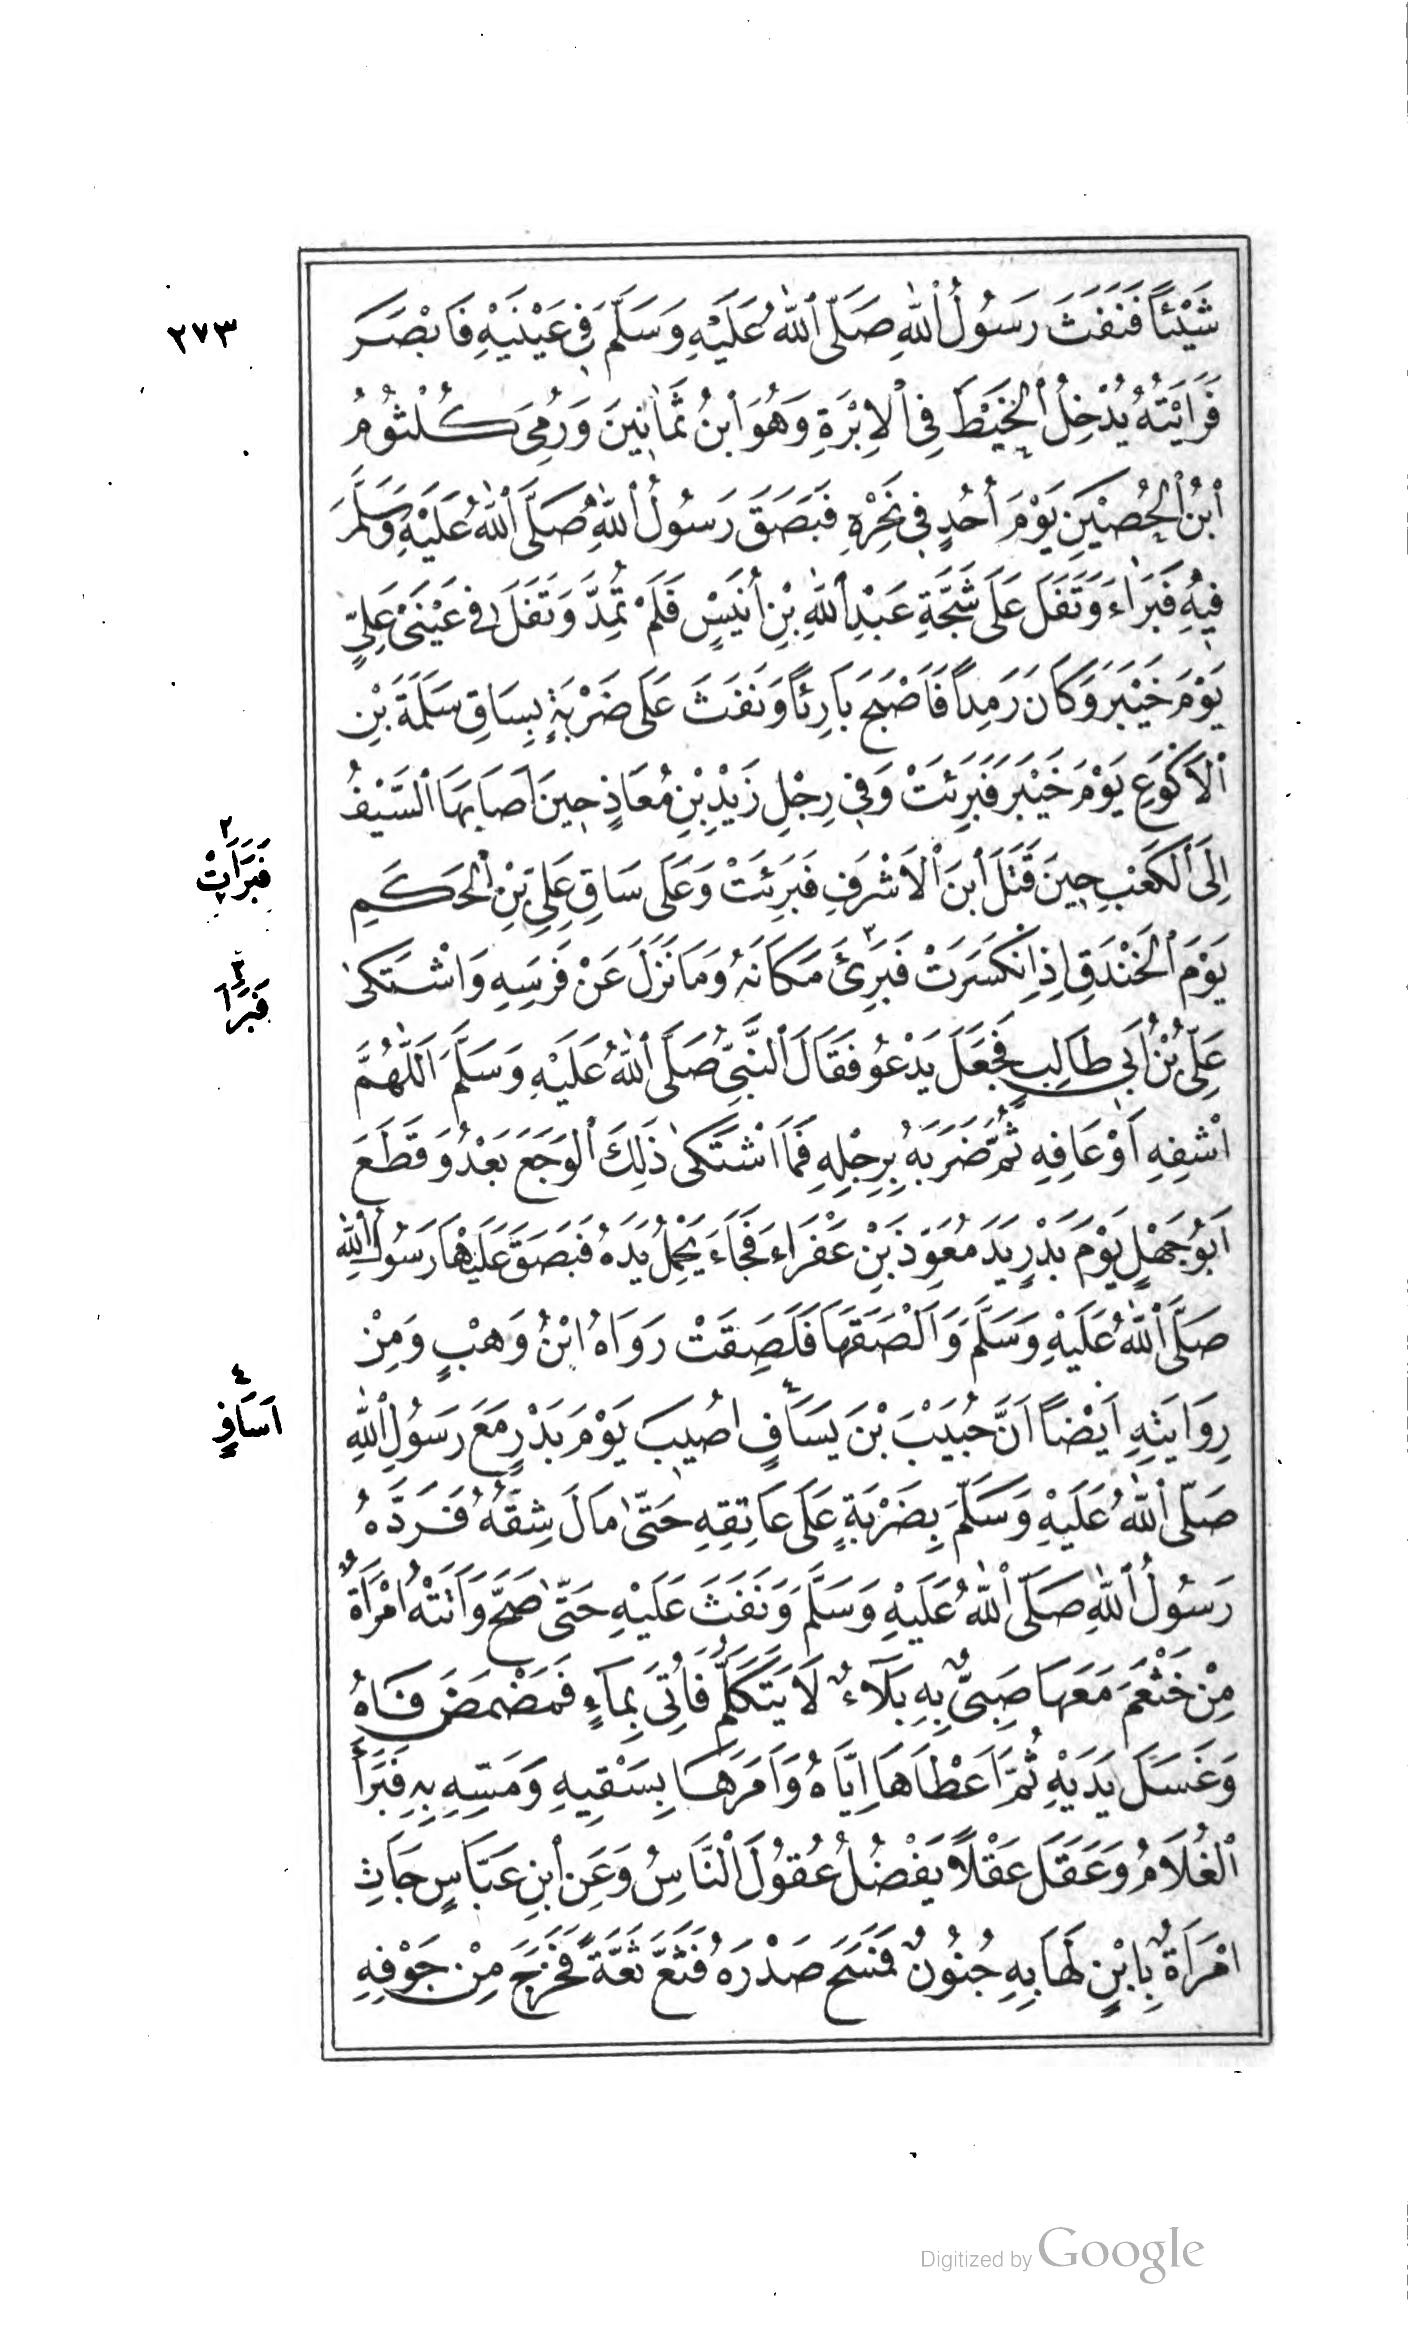 ٢٧٣
شَيْئًا فَنَفَثَ رَسُولُ ٱللّٰهِ صَلَّى ٱللّٰهُ عَلَيْهِ وَسَلَّمَ فِي عَيْنَيْهِ فَاَبْصَرَ
فَرَاَيْتُهُ يُدْخِلُ ٱلْخَيْطَ فِي ٱلْاِبْرَةِ وَهُوَ ٱبْنُ ثَمَانِينَ وَرُمِيَ كُلْثُومُ
ٱبْنُ ٱلْحُصَيْنِ يَوْمَ اُحُدٍ فِي نَحْرِهِ فَبَصَقَ رَسُولُ ٱللّٰهِ صَلَّى ٱللّٰهُ عَلَيْهِ وَسَلَّمَ
فِيهِ فَبَرَاَ وَتَفَلَ عَلَى شَجَّةِ عَبْدِ ٱللّٰهِ بْنِ اُنَيْسٍ فَلَمْ تُمِدَّ وَتَفَلَ فِي عَيْنَيْ عَلِيٍّ
يَوْمَ خَيْبَرَ وَكَانَ رَمِدًا فَاَصْبَحَ بَارِئًا وَنَفَثَ عَلَى ضَرْبَةٍ بِسَاقِ سَلَمَةَ بْنِ
ٱلْاَكْوَعِ يَوْمَ خَيْبَرَ فَبَرِئَتْ وَفِي رِجْلِ زَيْدِ بْنِ مُعَاذٍ حِينَ اَصَابَهَا ٱلسَّيْفُ
اِلَى ٱلْكَعْبِ حِينَ قَتَلَ ٱبْنَ ٱلْاَشْرَفِ فَبَرِئَتْ وَعَلَى سَاقِ عَلِيِّ بْنِ ٱلْحَكَمِ
٢
فَبَرَاَتْ
يَوْمَ ٱلْخَنْدَقِ اِذِ ٱنْكَسَرَتْ فَبَرِئَ٣ مَكَانَهُ وَمَا نَزَلَ عَنْ فَرَسِهِ وَاشْتَكٰى
٣
فَبَرَاَ
عَلِيُّ بْنُ اَبِي طَالِبٍ فَجَعَلَ يَدْعُو فَقَالَ ٱلنَّبِيُّ صَلَّى ٱللّٰهُ عَلَيْهِ وَسَلَّمَ اَللّٰهُمَّ
ٱشْفِهِ اَوْ عَافِهِ ثُمَّ ضَرَبَهُ بِرِجْلِهِ فَمَا ٱشْتَكٰى ذٰلِكَ ٱلْوَجَعَ بَعْدُ وَقَطَعَ
اَبُو جَهْلٍ يَوْمَ بَدْرٍ يَدَ مُعَوِّذِ بْنِ عَفْرَاءَ فَجَاءَ يَحْمِلُ يَدَهُ فَبَصَقَ عَلَيْهَا رَسُولُ ٱللّٰهِ
صَلَّى ٱللّٰهُ عَلَيْهِ وَسَلَّمَ وَاَلْصَقَهَا فَلَصِقَتْ رَوَاهُ ابْنُ وَهْبٍ وَمِنْ
رِوَايَتِهِ اَيْضًا اَنَّ خُبَيْبَ بْنَ يَسَافٍ٤ اُصِيبَ يَوْمَ بَدْرٍ مَعَ رَسُولِ ٱللّٰهِ
٤
اَسَافٍ
صَلَّى ٱللّٰهُ عَلَيْهِ وَسَلَّمَ بِضَرْبَةٍ عَلَى عَاتِقِهِ حَتّٰى مَالَ شِقُّهُ فَرَدَّهُ
رَسُولُ ٱللّٰهِ صَلَّى ٱللّٰهُ عَلَيْهِ وَسَلَّمَ وَنَفَثَ عَلَيْهِ حَتّٰى صَحَّ وَاَتَتْهُ امْرَاَةٌ
مِنْ خَثْعَمَ مَعَهَا صَبِيٌّ بِهِ بَلَاءٌ لَا يَتَكَلَّمُ فَاُتِيَ بِمَاءٍ فَمَضْمَضَ فَاهُ
وَغَسَلَ يَدَيْهِ ثُمَّ اَعْطَاهَا اِيَّاهُ وَاَمَرَهَا بِسَقْيِهِ وَمَسِّهِ بِهِ فَبَرَأَ
ٱلْغُلَامُ وَعَقَلَ عَقْلًا يَفْضُلُ عُقُولَ ٱلنَّاسِ وَعَنِ ٱبْنِ عَبَّاسٍ جَاءَتِ
امْرَاَةٌ بِابْنٍ لَهَا بِهِ جُنُونٌ فَمَسَحَ صَدْرَهُ فَثَعَّ ثَعَّةً فَخَرَجَ مِنْ جَوْفِهِ
Digitized by Google